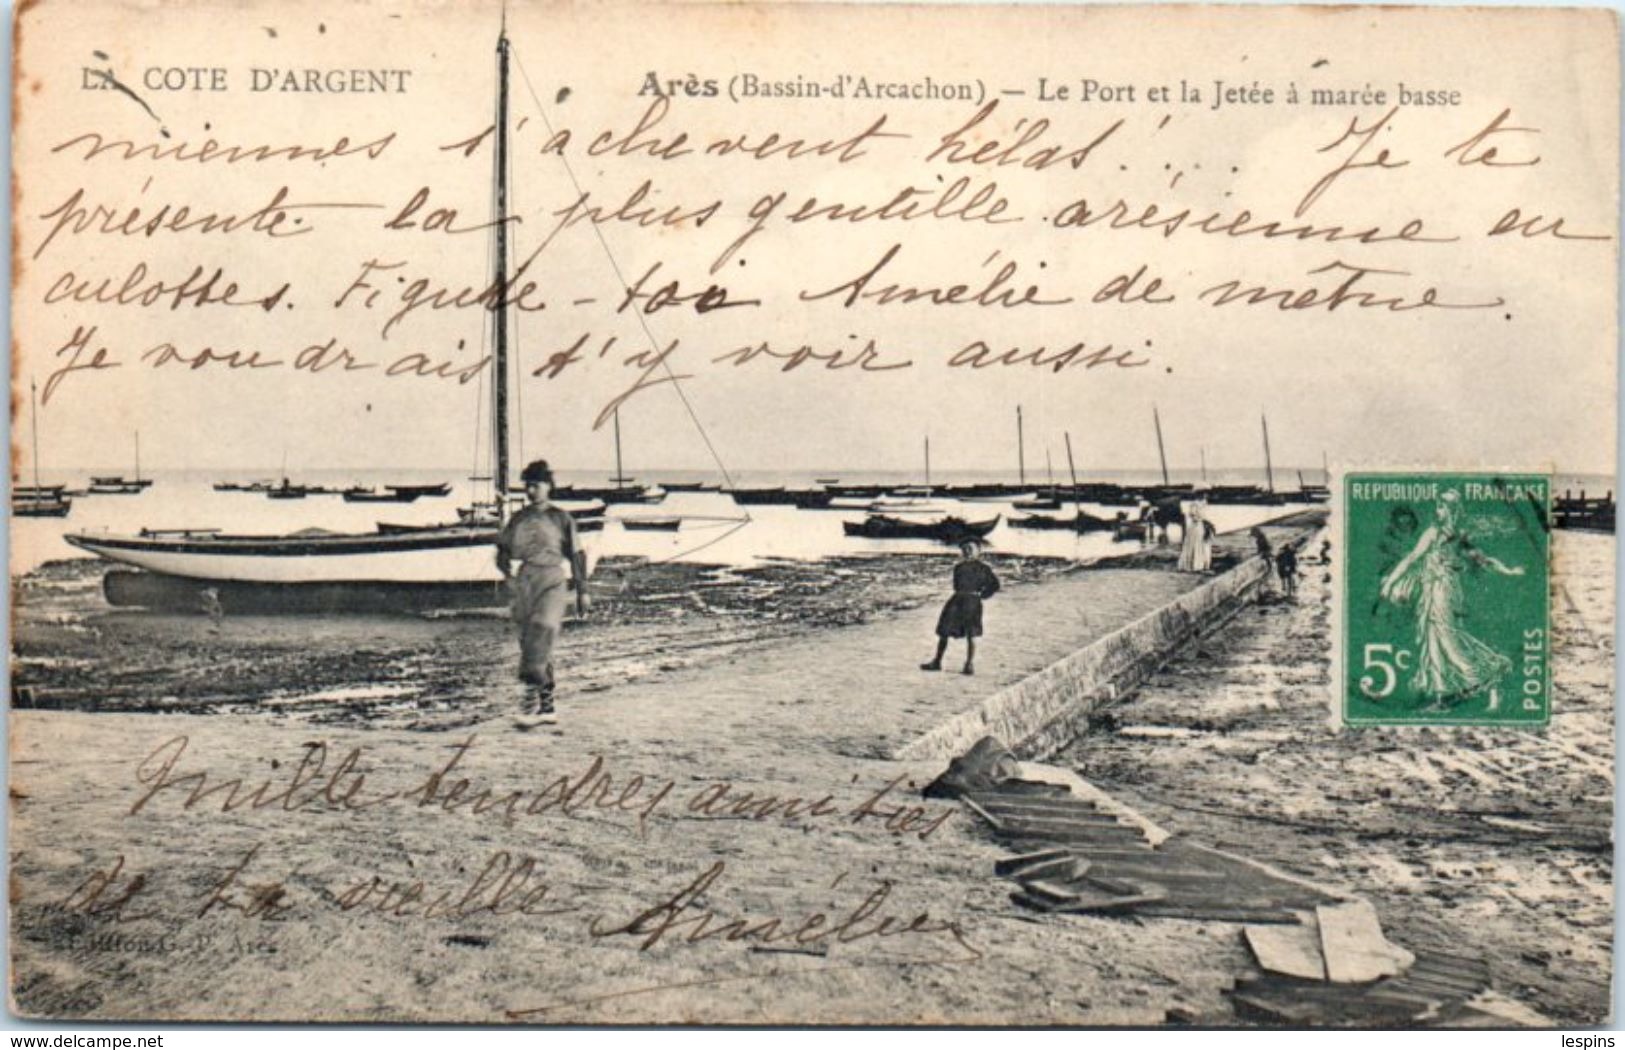 LA COTE D'ARGENT
Arès (Bassin-d'Arcachon) — Le Port et la Jetée à marée basse
miennes s'achèvent hélas!... Je te
présente la plus gentille arésienne en
culottes. Figure-toi Amélie de même.
Je voudrais t'y voir aussi.
REPUBLIQUE FRANÇAISE
5c
POSTES
Mille tendres amitiés
de ta vieille Amélie
Edition G. P. Arès
www.delcampe.net
lespins